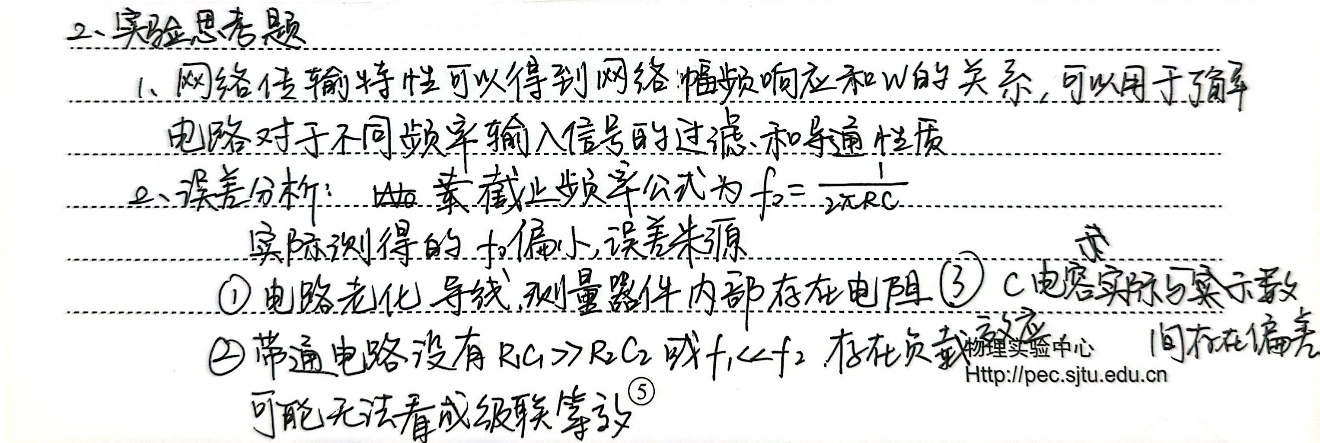 2、实验思考题
1、网络传输特性可以得到网络幅频响应和W的关系,可以用于了解
电路对于不同频率输入信号的过滤、和导通性质
2、误差分析: 截止频率公式为 f₀ = 1/2πRC
实际测得的 f₀偏小,误差来源
①电路老化 导线,测量器件内部存在电阻 ③ C电容实际与示数
间存在偏差
②带通电路没有 R₁C₁>>R₂C₂ 或 f₁<<f₂ ,存在负载效应
可能无法看成级联等效
物理实验中心
Http://pec.sjtu.edu.cn
⑤